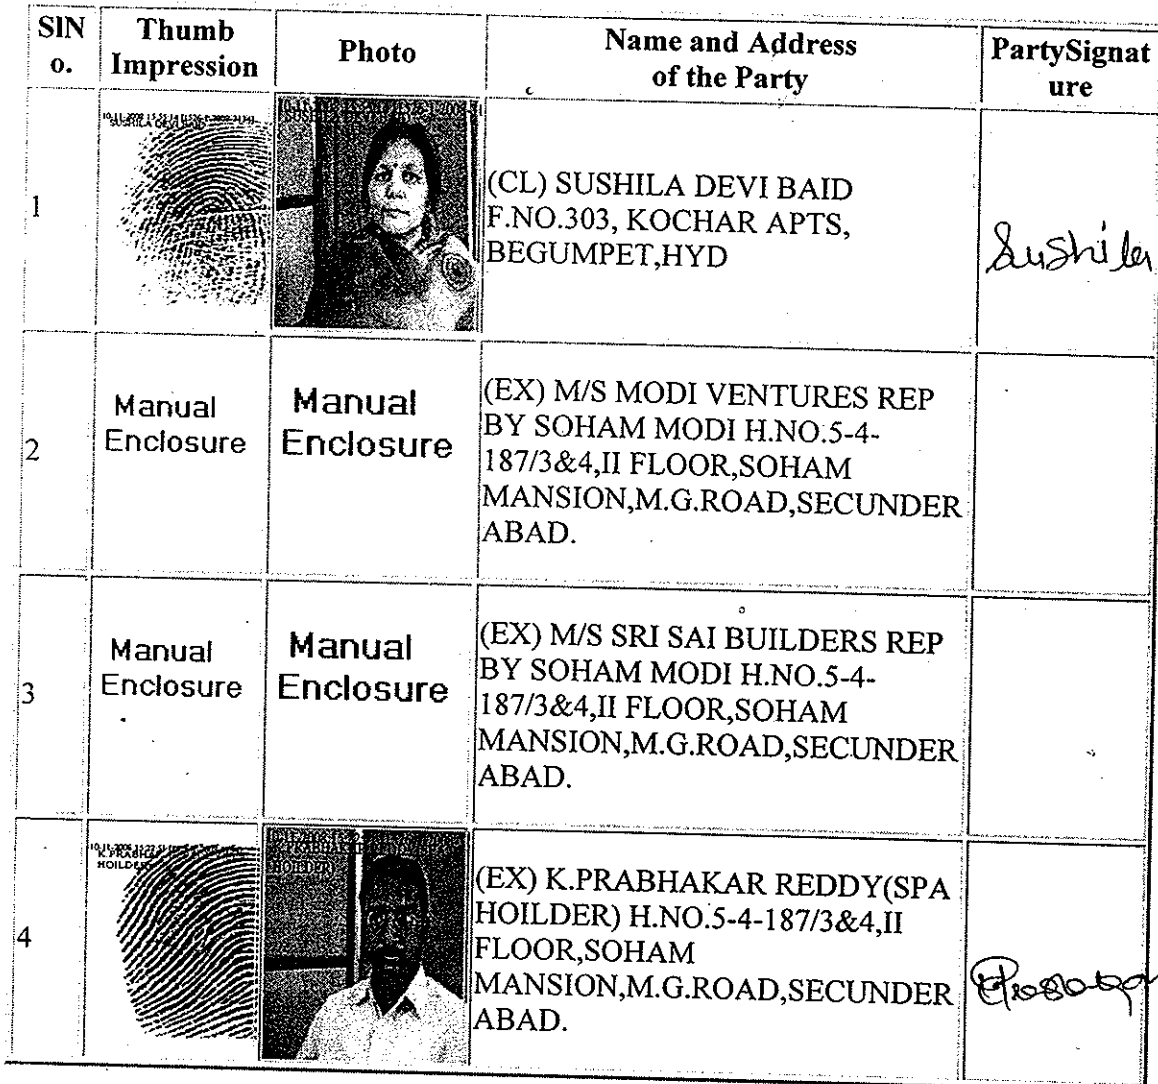 SlN
o.
Thumb
Impression
Photo
Name and Address
of the Party
PartySignat
ure
1
SUSHILA DEVI BAID
SUSHILA DEVI BAID
(CL) SUSHILA DEVI BAID
F.NO.303, KOCHAR APTS,
BEGUMPET,HYD
Sushila
2
Manual
Enclosure
Manual
Enclosure
(EX) M/S MODI VENTURES REP
BY SOHAM MODI H.NO.5-4-
187/3&4,II FLOOR,SOHAM
MANSION,M.G.ROAD,SECUNDER
ABAD.
3
Manual
Enclosure
Manual
Enclosure
(EX) M/S SRI SAI BUILDERS REP
BY SOHAM MODI H.NO.5-4-
187/3&4,II FLOOR,SOHAM
MANSION,M.G.ROAD,SECUNDER
ABAD.
4
HOILDER)
HOILDER)
(EX) K.PRABHAKAR REDDY(SPA
HOILDER) H.NO.5-4-187/3&4,II
FLOOR,SOHAM
MANSION,M.G.ROAD,SECUNDER
ABAD.